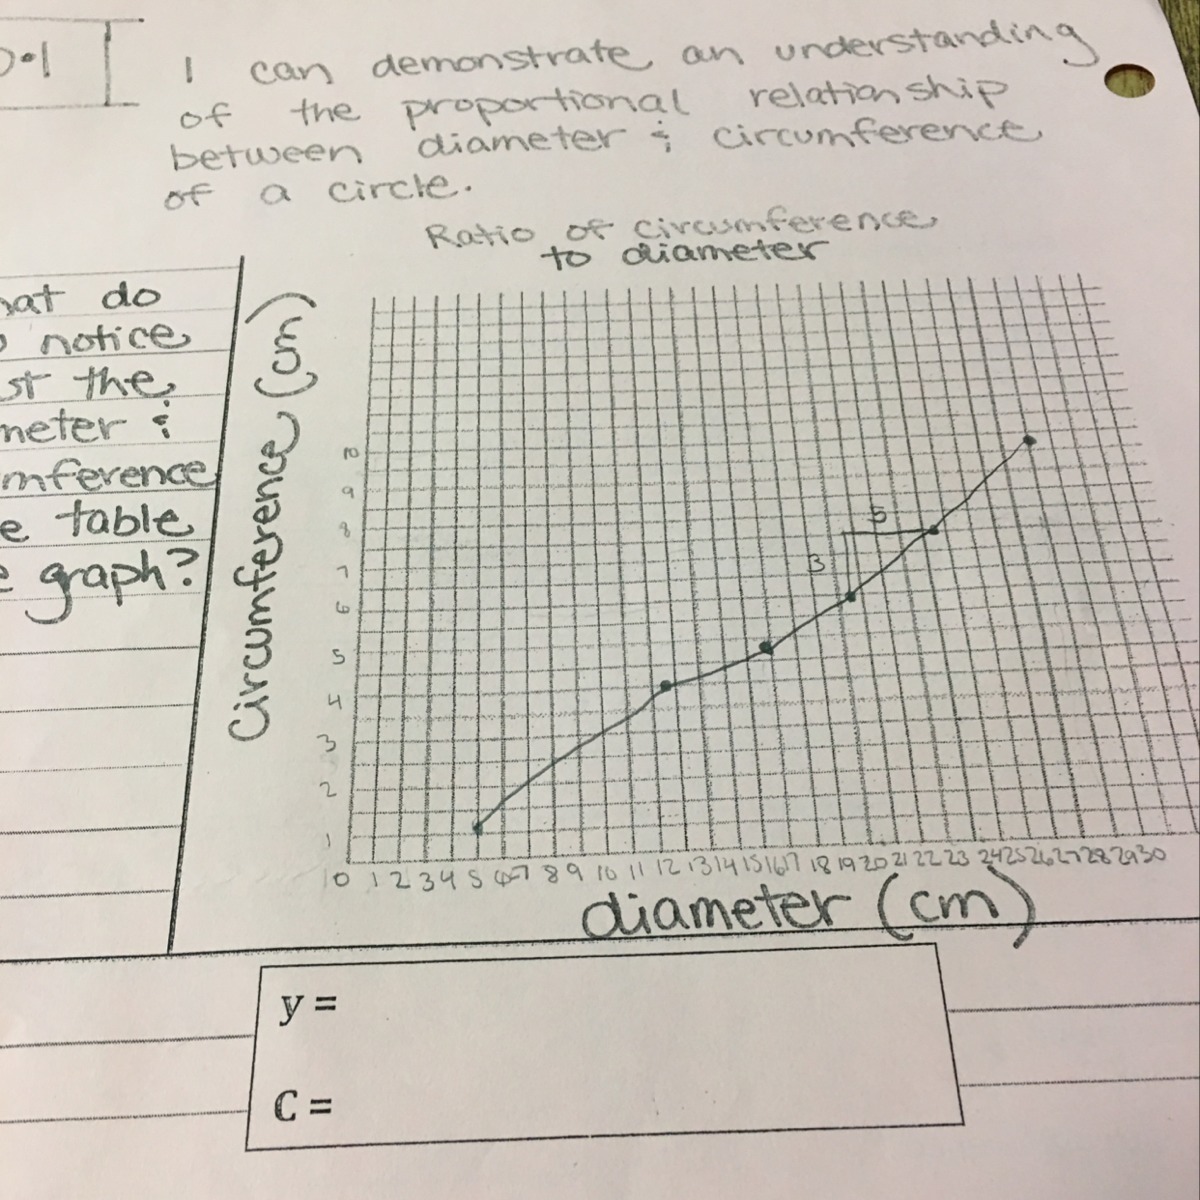 I can demonstrate an understanding
of the proportional relationship
between diameter & circumference
of a circle.
Ratio of circumference
to diameter
do
notice
the
&
table
graph?
Circumference (cm)
10
9
8
7
6
5
4
3
2
1
5
3
0 1 2 3 4 5 6 7 8 9 10 11 12 13 14 15 16 17 18 19 20 21 22 23 24 25 26 27 28 29 30
diameter (cm)
y =
C =